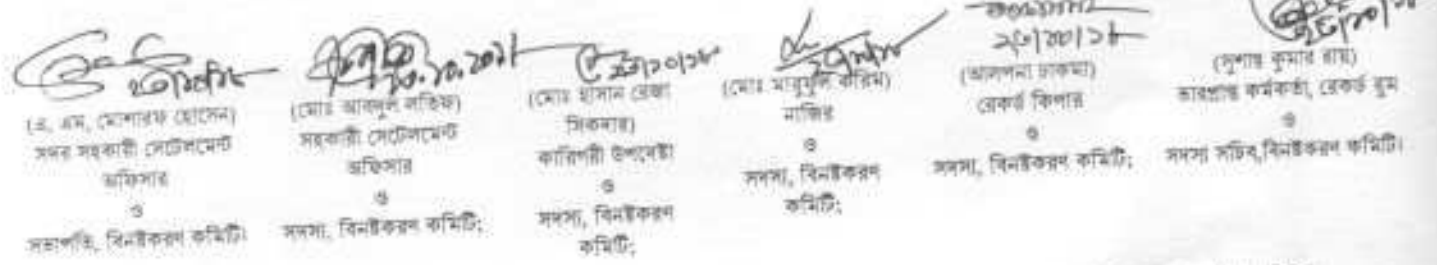 ২৩/১০/১৮
২৩.১০.২০১৮
২৩/১০/১৮
২৩/১০/১৮
২৩/১০/১৮
(এ, এম, মোশারফ হোসেন)
সদর সহকারী সেটেলমেন্ট
অফিসার
ও
সভাপতি, বিনষ্টকরণ কমিটি।
(মোঃ আবদুল লতিফ)
সহকারী সেটেলমেন্ট
অফিসার
ও
সদস্য, বিনষ্টকরণ কমিটি;
(মোঃ হাসান রেজা
সিকদার)
কারিগরী উপদেষ্টা
ও
সদস্য, বিনষ্টকরণ
কমিটি;
(মোঃ মাবুবুল করিম)
নাজির
ও
সদস্য, বিনষ্টকরণ
কমিটি;
(আলপনা চাকমা)
রেকর্ড কিপার
ও
সদস্য, বিনষ্টকরণ কমিটি;
(সুশান্ত কুমার রায়)
ভারপ্রাপ্ত কর্মকর্তা, রেকর্ড রুম
ও
সদস্য সচিব,বিনষ্টকরণ কমিটি।